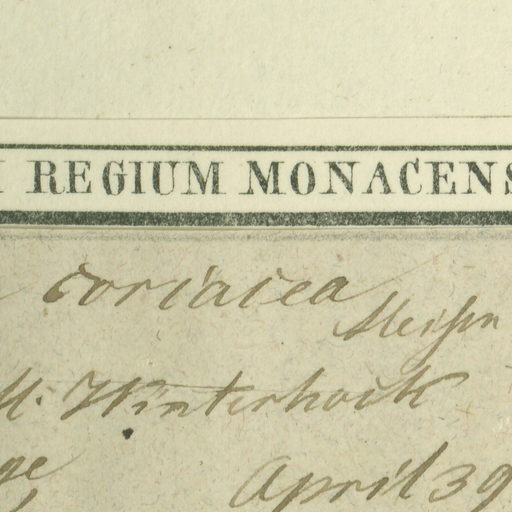 REGIUM MONACENS
coriacea
Meissn
M. Winterhoek
ge
April 39